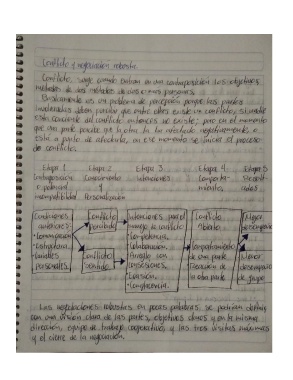 Conflicto y negociación robusta
Conflicto, surge cuando entran en una contraposición los objetivos,
métodos de dos o más personas.
Básicamente es un problema de percepción porque las partes
involucradas deben percibir que entre ellos existe un conflicto, si nadie
está consciente del conflicto entonces no existe, pero en el momento
que una parte percibe que la otra la ha afectado negativamente o
está a punto de afectarla, en ese momento se inicia el proceso
de conflicto.
Etapa 1 Etapa 2 Etapa 3 Etapa 4 Etapa 5
Conocimiento Intenciones Comporta-
o potencial y miento
incompatibilidad Personalización
Condiciones Conflicto Intenciones para el Conflicto Mejor
anteriores: percibido manejo de conflicto Abierto desempeño
•Comunicación •Competencia. •Comportamiento
•Estructura. •Colaboración. de una parte
•Variables Conflicto •Arreglo con •Reacción de Menor
personales. sentido concesiones. la otra parte desempeño
•Evasión. de grupo
Las negociaciones robustas en pocas palabras se podrían definir
con una visión clara de las partes, objetivos claros y en la misma
dirección, equipo de trabajo cooperativos y las tres
y el cierre de la negociación.